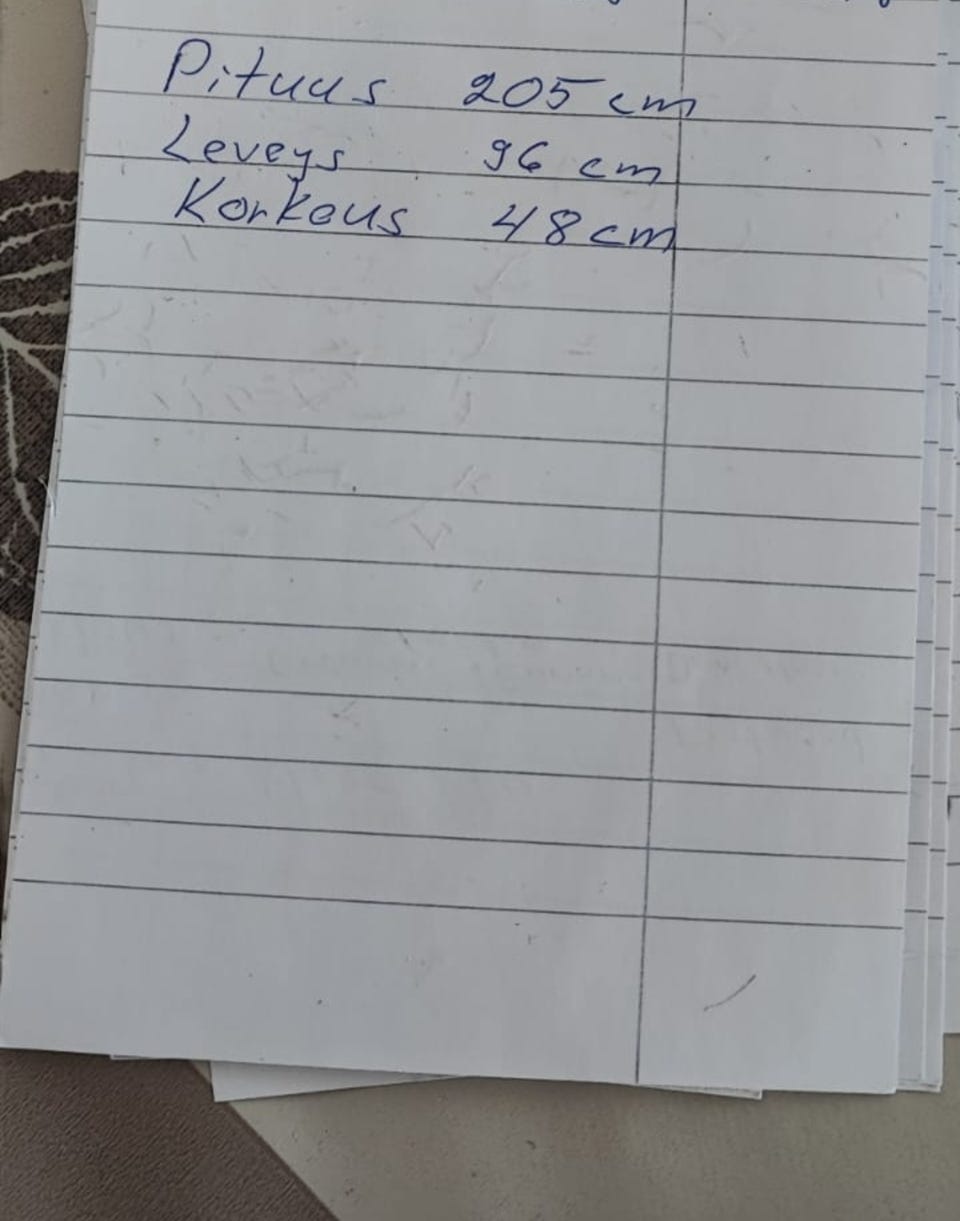 Pituus 205 cm
Leveys 96 cm
Korkeus 48 cm